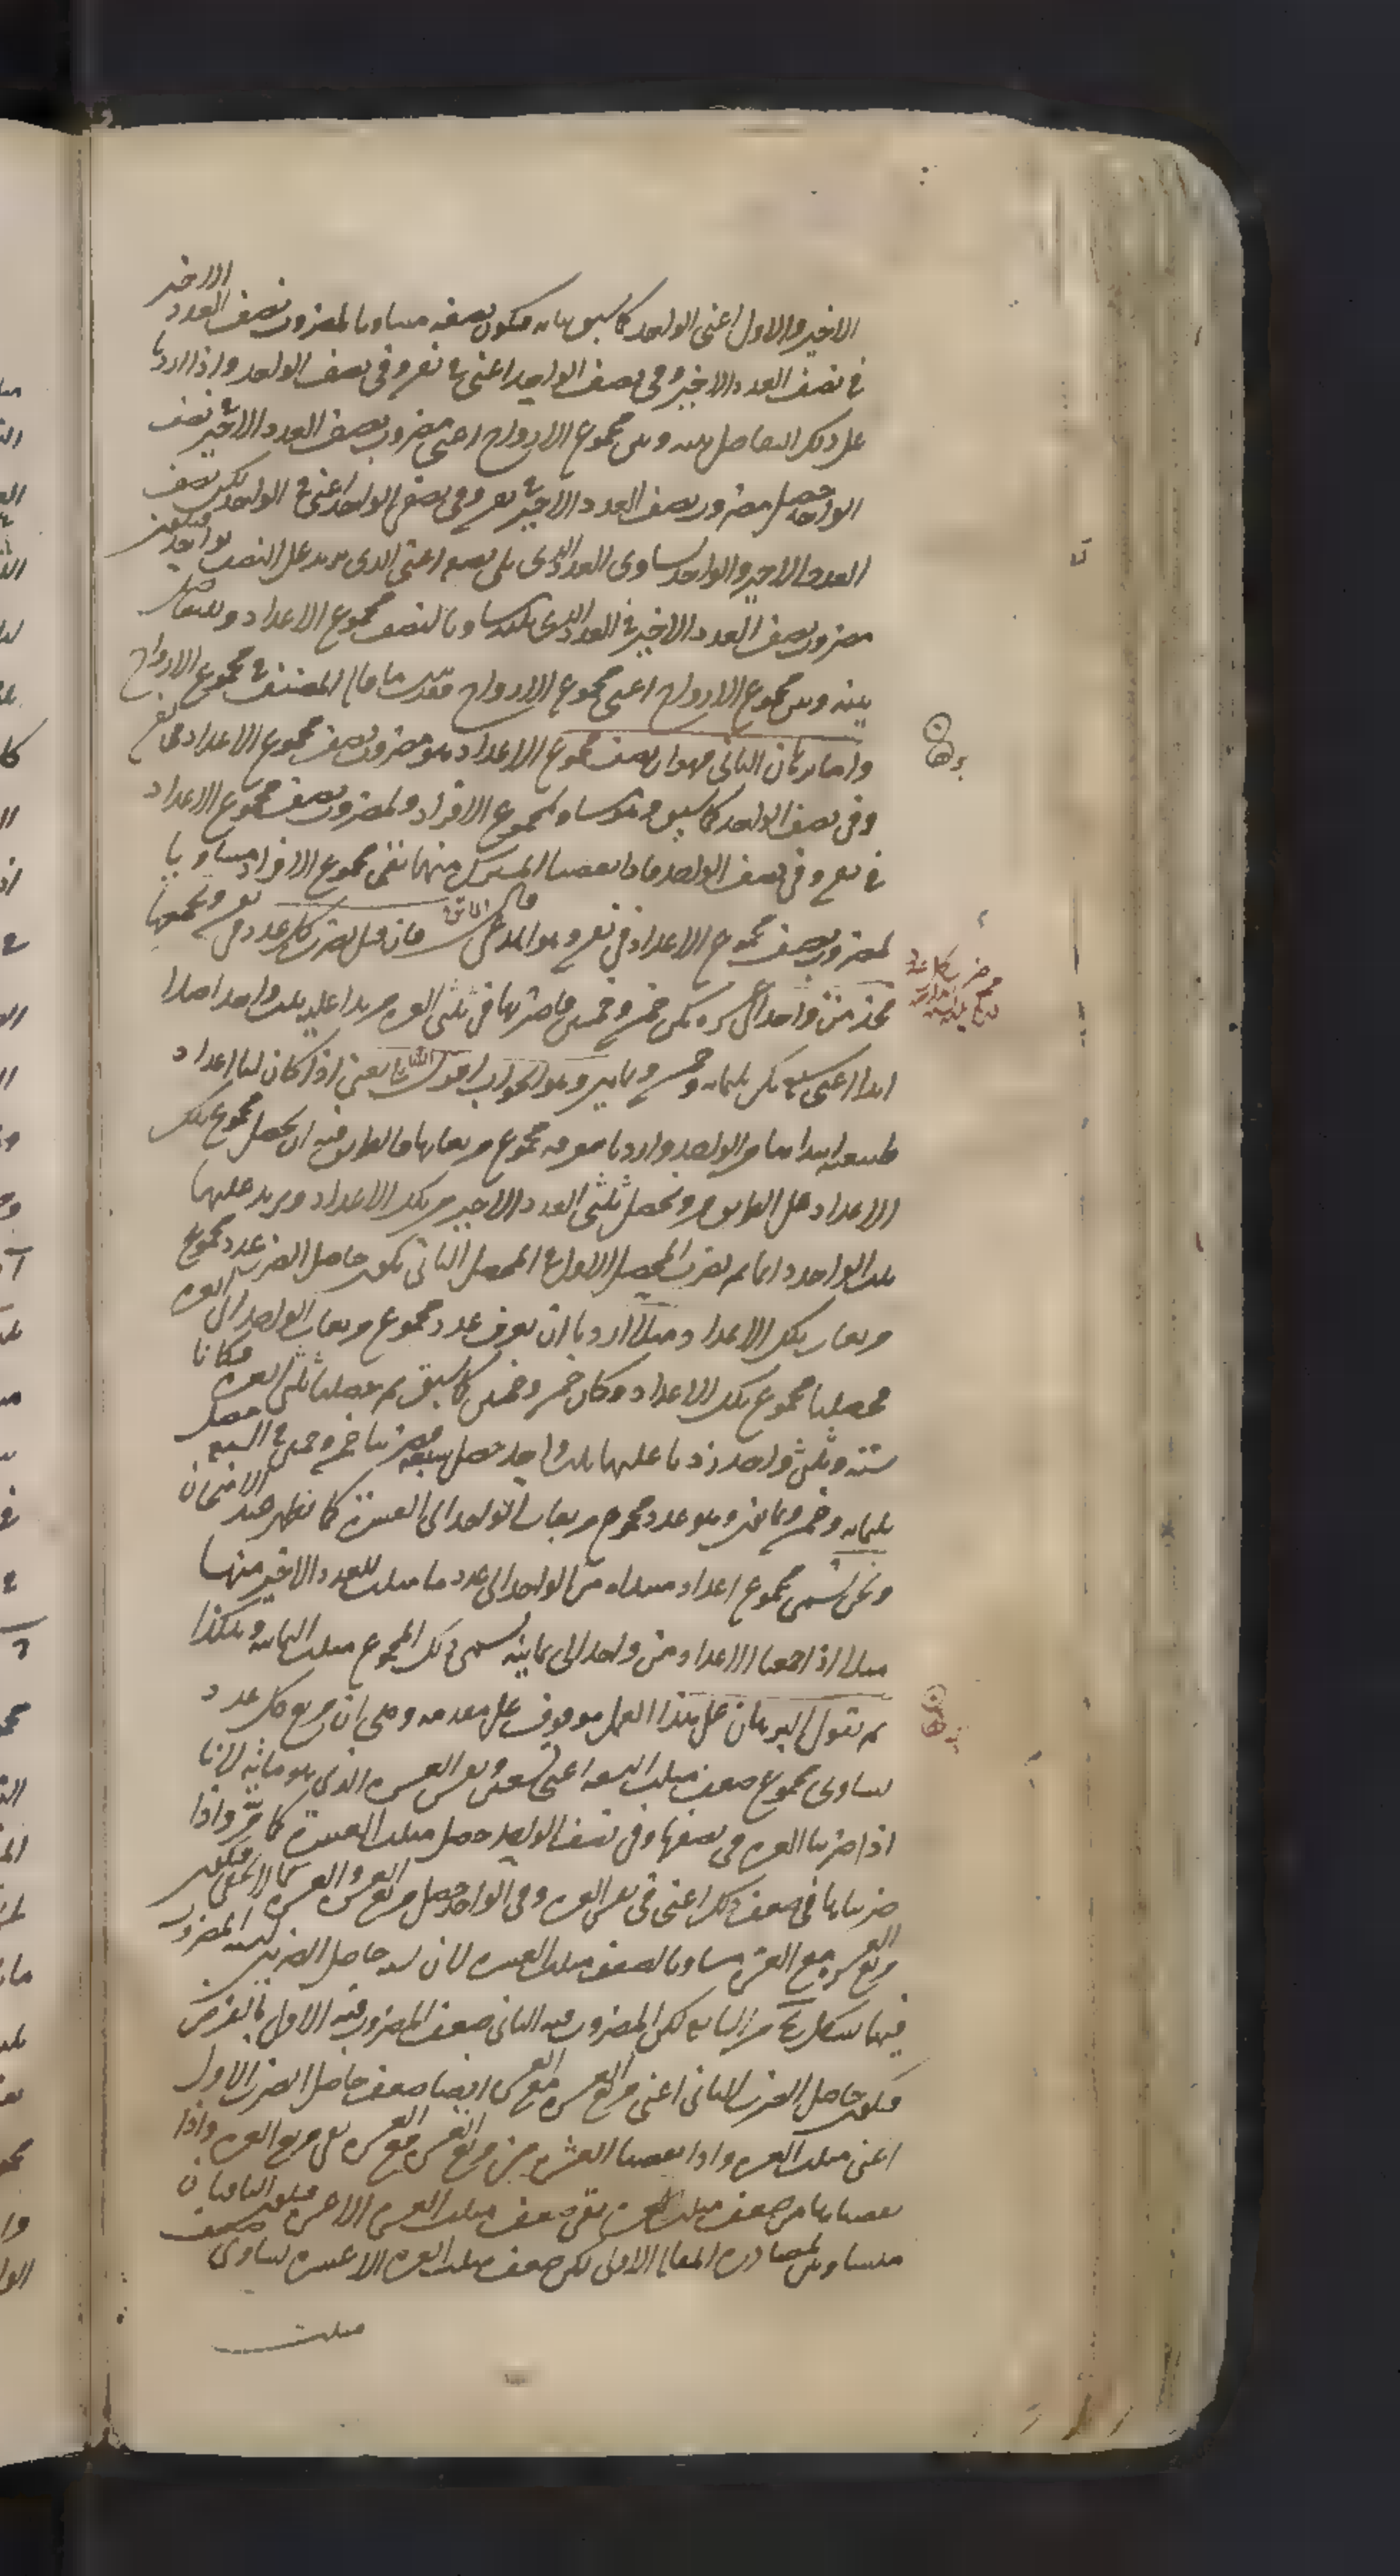 الاخير والاول اعنى الواحد كما سبق بيانه فيكون نصفه مساويا لمضروب نصف العدد الاخير
فى نصف العدد الاخير وفى نصف الواحد اعنى فى نفسه وفى نصف الواحد واذا اردنا
على ذلك التفاضل بينه وبين مجموع الازواج اعنى مضروب نصف العدد الاخير فى نصف
الواحد حصل مضروب نصف العدد الاخير فى نفسه وفى نصفى الواحد اعنى فى الواحد لكن نصف
العدد الاخير والواحد يساوى العدد الذى يلى نصفه اعنى الذى يزيد على النصف بواحد فيكون
مضروب نصف العدد الاخير فى العدد الذى يليه مساويا لنصف مجموع الاعداد وللتفاضل
بينه وبين مجموع الازواج اعنى مجموع الازواج فقد ثبت ما قال المصنف فى مجموع الازواج
واما برهان الثانى فهو ان نصف مجموع الاعداد هو مضروب نصف مجموع الاعداد فى نفسه
وفى نصف الواحد كما سبق وهو مساو لمجموع الافراد ولمضروب نصف مجموع الاعداد
فى نفسه وفى نصف الواحد فاذا نقصنا المشترك منهما بقى مجموع الافراد مساويا
لمضروب نصف مجموع الاعداد فى نفسه وهو المدعى قال فان قيل نضرب كل عدد فى نفسه ونجمعها
فخذ من واحد الى عشرة يكن خمسة وخمسين فاضربها فى ثلثى العشرة مزيدا عليه ثلث واحد اصلا
ابدا اعنى سبعة يكن ثلثمائة وخمسة وثمانين وهو الجواب اقول يعنى اذا كان لنا اعداد
طبيعية ابتداءها من الواحد واردنا معرفة مجموع مربعاتها فالطريق فيه ان نحصل مجموع تلك
الاعداد على الطريق مر ونحصل ثلثى العدد الاخير من تلك الاعداد ونزيد عليهما
ثلث الواحد دائما ثم نضرب المحصل الاول فى المحصل الثانى يكون حاصل الضرب عدد مجموع
مربعات تلك الاعداد مثلا اردنا ان نعرف عدد مجموع مربعات الواحد الى العشرة
فحصلنا مجموع تلك الاعداد وكان خمسة وخمسين كما سبق ثم حصلنا ثلثى العشرة فكانا
ستة وثلثى واحد زدنا عليها ثلث واحد حصل سبعة فضربنا خمسة وخمسين فى السبعة حصل
ثلثمائة وخمسة وثمانين وهو عدد مجموع مربعات الواحد الى العشرة كما يظهر عند الامتحان
ونحن نسمى مجموع اعداد مبتدأة من الواحد الى عدد ما مثلث للعدد الاخير منها
مثلا اذا جمعنا الاعداد من واحد الى ثمانية نسمى ذلك المجموع مثلث الثمانية وهكذا
ثم نقول البرهان على هذا العمل موقوف على مقدمة وهى ان مربع كل عدد
يساوى مجموع ضعف مثلث التسعة اعنى تسعين ونفس العشرة الذى هو مائة لانا
اذا ضربنا العشرة فى نصفها وفى نصف الواحد حصل مثلث العشرة كما مر واذا
ضربناها فى ضعف ذلك اعنى فى نفس العشرة وفى الواحد حصل مربع العشرة والعشرة كما لا يخفى فيكون
مربع العشرة مع العشرة مساويا لضعف مثلث العشرة لان نسبة حاصل الضربين كنسبة المضروب
فيهما بشكل من السابعة لكن المضروب فيه الثانى ضعف المضروب فيه الاول بالفرض
فيكون حاصل الضرب الثانى اعنى مربع العشرة مع العشرة ايضا ضعف حاصل الضرب الاول
اعنى مثلث العشرة واذا نقصنا العشرة من مربع العشرة مع العشرة بقى مربع العشرة واذا
نقصناها من ضعف مثلث العشرة بقى ضعف مثلث العشرة الا عشرة فيكون الباقيان
متساويين لمصادرة المقالة الاولى لكن ضعف مثلث العشرة الا عشرة يساوى ضعف
مثلث